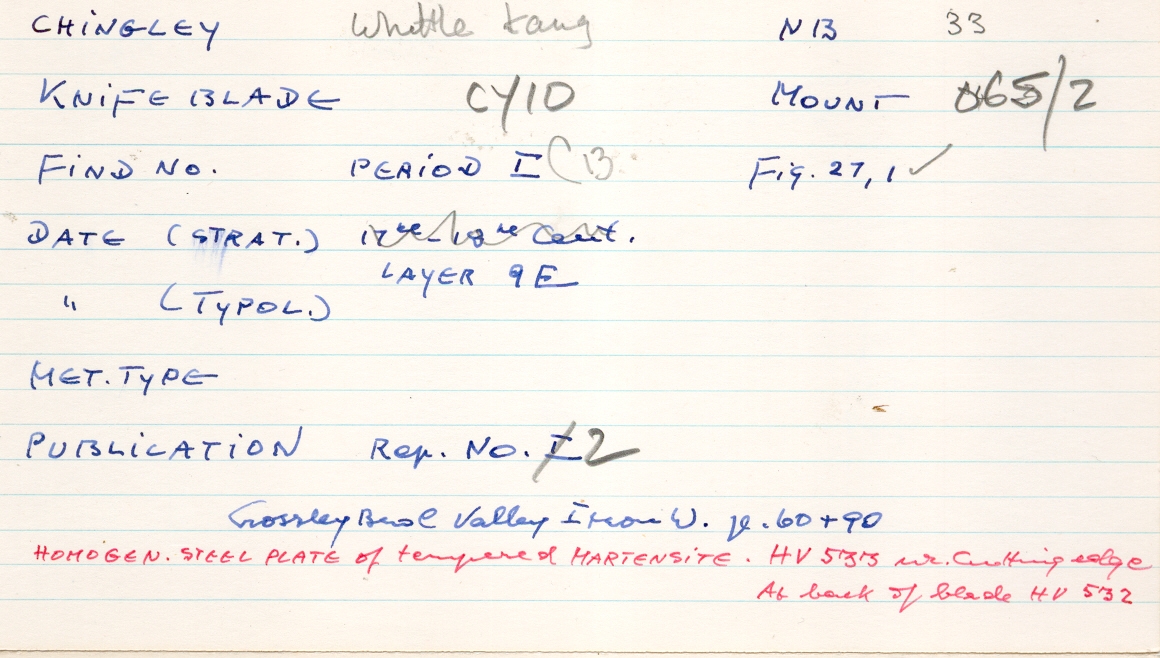 CHINGLEY Whittle tang N 13 33
KNIFE BLADE CY10 MOUNT 065/2
FIND NO. PERIOD I C13 Fig. 27, 1 ✓
DATE (STRAT.) Cent.
LAYER 9E
" (TYPOL.)
MET. TYPE
PUBLICATION Rep. No. I 2
Crossley Bewl Valley Iron W. p. 60 + 90
HOMOGEN. STEEL PLATE of tempered MARTENSITE. HV 533 nr. Cutting edge
At back of blade HV 532